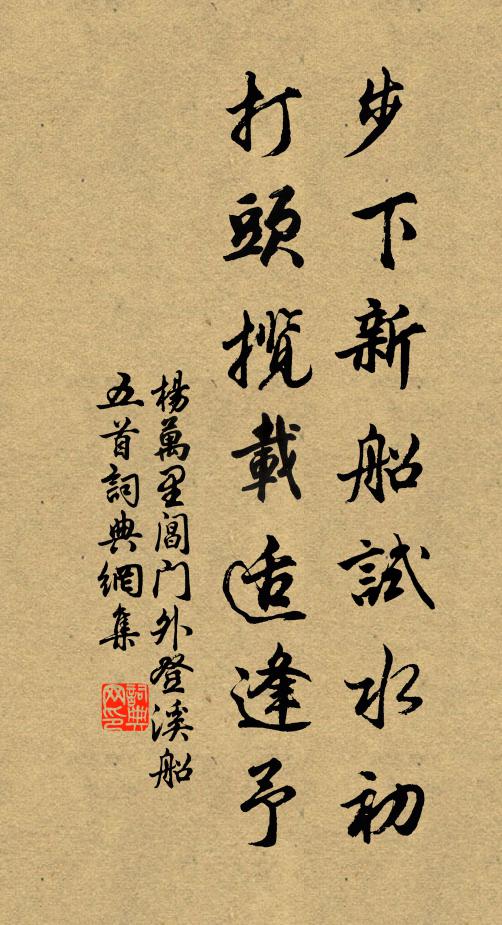 步下新船試水初
打頭攬載适逢予
楊萬里閶門外登溪船
五首詞典網集
詞典网印